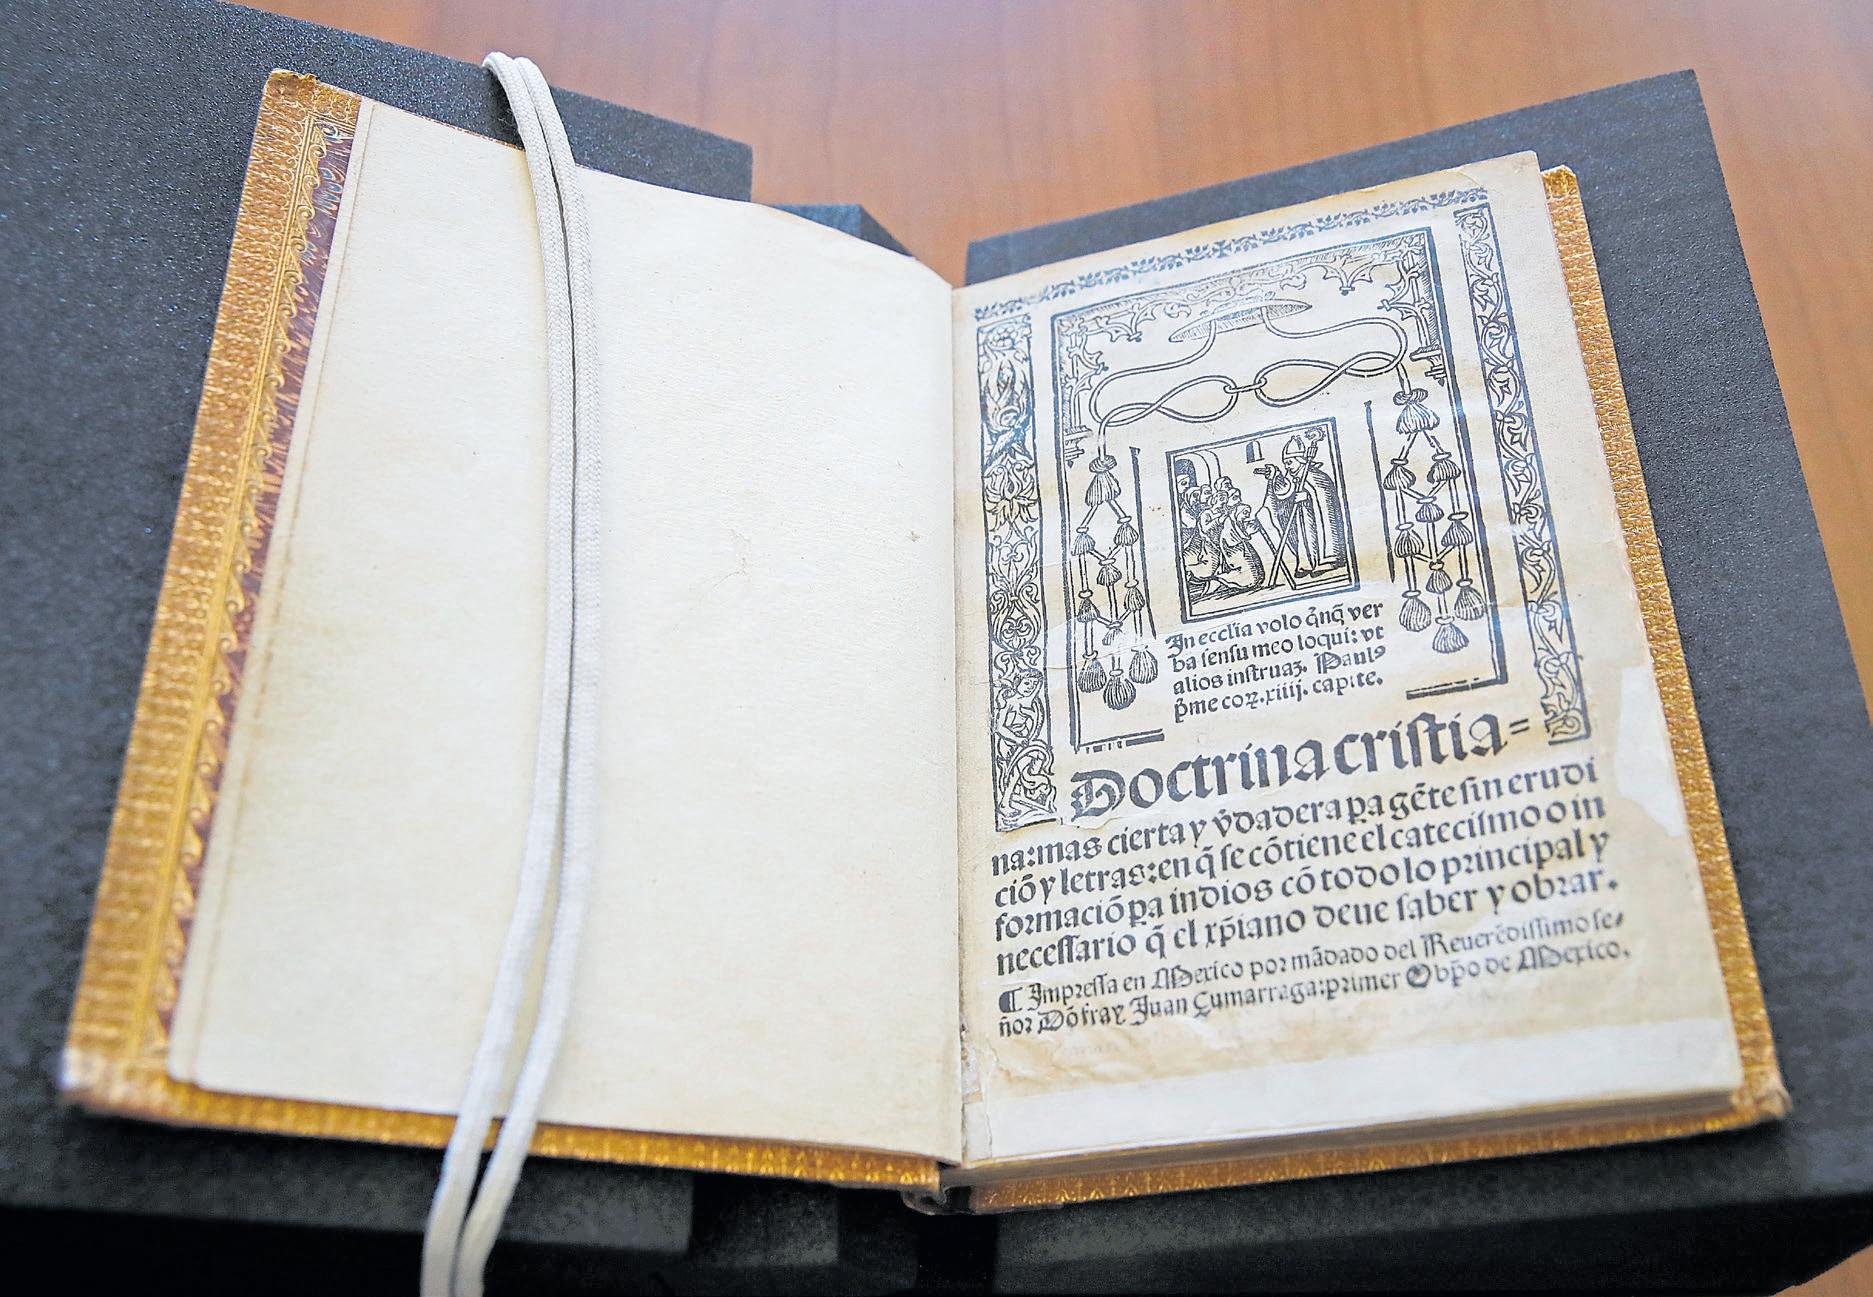 In ecclia volo q̄nq̃ ver
ba sensu meo loqui: vt
alios instruaʒ. Paulꝰ
p̄me coꝝ. xiiij. capite.
Doctrina cristia=
na: mas cierta y v̄dadera ꝑa gēte sin erudi
ciō y letras: en q̃ se cōtiene el catecismo o in
formaciō ꝑa indios cō todo lo principal y
necessario q̃ el xp̄iano deue saber y obrar.
¶ Impressa en Mexico por mādado del Reuerēdissimo se-
ñor Dō fray Juan Çumarraga: primer Obp̄o de Mexico.